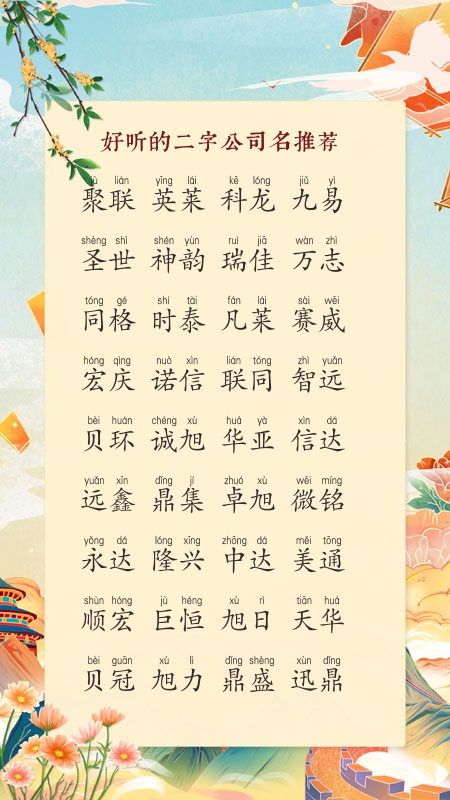 好听的二字公司名推荐
jù lián yīng lái kē lóng jiǔ yì
聚联 英莱 科龙 九易
shèng shì shén yùn ruì jiā wàn zhì
圣世 神韵 瑞佳 万志
tóng gé shí tài fán lái sài wēi
同格 时泰 凡莱 赛威
hóng qìng nuò xìn lián tóng zhì yuǎn
宏庆 诺信 联同 智远
bèi huán chéng xù huá yà xìn dá
贝环 诚旭 华亚 信达
yuǎn xīn dǐng jí zhuó xù wēi míng
远鑫 鼎集 卓旭 微铭
yǒng dá lóng xīng zhōng dá měi tōng
永达 隆兴 中达 美通
shùn hóng jù héng xù rì tiān huá
顺宏 巨恒 旭日 天华
bèi guān xù lì dǐng shèng xùn dǐng
贝冠 旭力 鼎盛 迅鼎